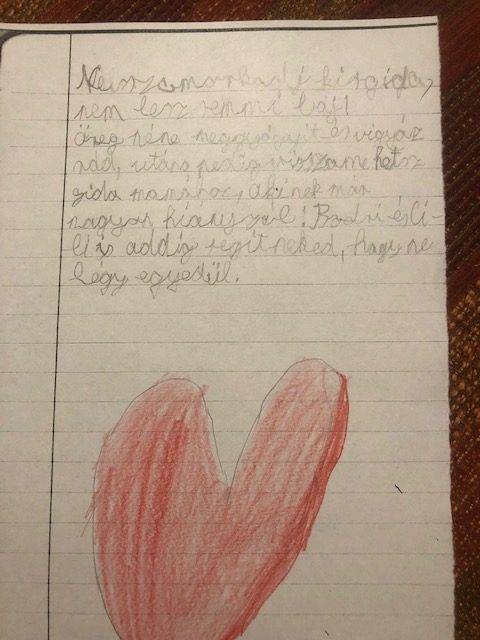 Ne szomorkodj kis gida,
nem lesz semmi baj!
Öreg néne meggyógyít és vigyáz
rád, utána pedig visszamehetsz
gida mamához, akinek már
nagyon hiányzol! Bodri és Ci-
li is addig segít neked, hogy ne
légy egyedül.